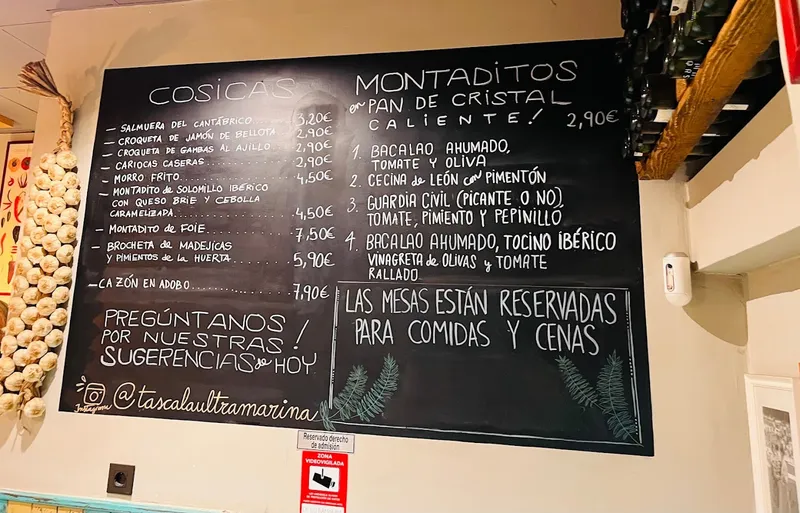 COSICAS
– SALMUERA DEL CANTÁBRICO........ 3,20€
– CROQUETA DE JAMÓN DE BELLOTA.. 2,90€
– CROQUETA DE GAMBAS AL AJILLO.... 2,90€
– CARIOCAS CASERAS............ 2,90€
– MORRO FRITO................ 4,50€
– MONTADITO DE SOLOMILLO IBÉRICO
CON QUESO BRIE Y CEBOLLA
CARAMELIZADA................ 4,50€
– MONTADITO DE FOIE............ 7,50€
– BROCHETA DE MADEJICAS
Y PIMIENTOS DE LA HUERTA........ 5,90€
– CAZÓN EN ADOBO............ 7,90€
PREGÚNTANOS
POR NUESTRAS
SUGERENCIAS DE HOY!
Instagram @tascalaultramarina
MONTADITOS
en PAN DE CRISTAL
CALIENTE! 2,90€
1. BACALAO AHUMADO,
TOMATE Y OLIVA
2. CECINA DE LEÓN CON PIMENTÓN
3. GUARDIA CIVIL (PICANTE O NO),
TOMATE, PIMIENTO Y PEPINILLO
4. BACALAO AHUMADO, TOCINO IBÉRICO
VINAGRETA DE OLIVAS Y TOMATE
RALLADO
LAS MESAS ESTÁN RESERVADAS
PARA COMIDAS Y CENAS
Reservado derecho
de admisión
ZONA
VIDEOVIGILADA